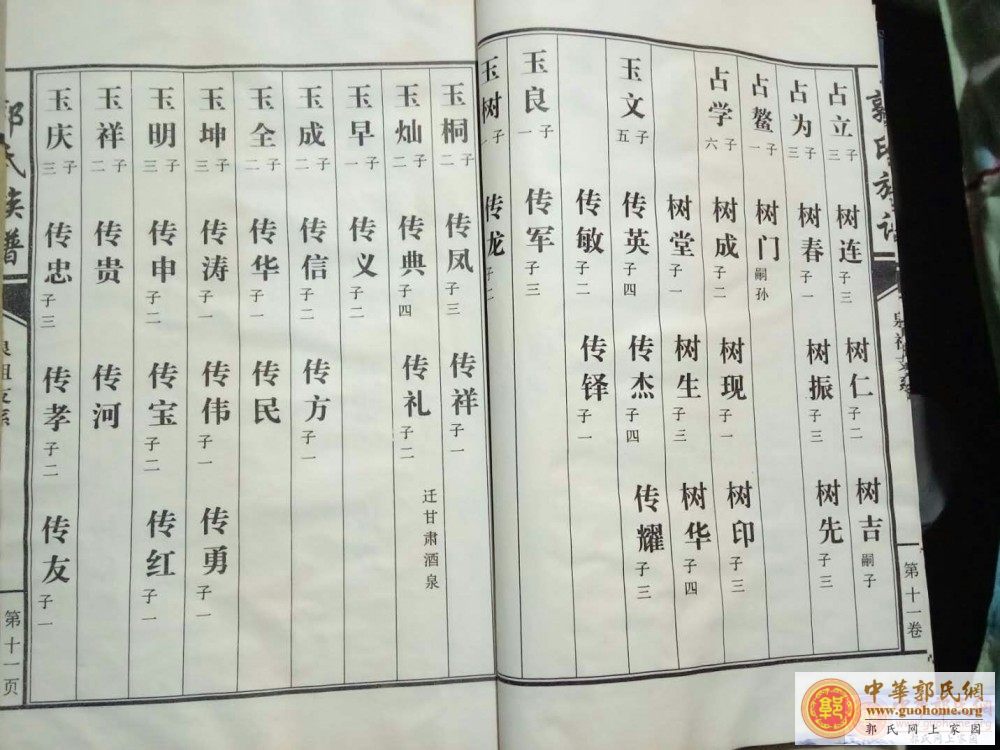 郭氏族谱
第十一卷
占立 子三 树连 子三 树仁 子二 树吉 嗣子
占为 子三 树春 子一 树振 子三 树先 子三
占鳌 子一 树门 嗣孙
占学 子六 树成 子二 树现 子一 树印 子三
树堂 子一 树生 子三 树华 子四
玉文 子五 传英 子四 传杰 子四 传耀 子三
传敏 子二 传铎 子一
玉良 子一 传军 子三
玉树 子一 传龙 子二
玉桐 子二 传凤 子三 传祥 子一
玉灿 子二 传典 子四 传礼 子二 迁甘肃酒泉
玉早 子一 传义 子二
玉成 子二 传信 子二 传方 子一
玉全 子二 传华 子一 传民
玉坤 子三 传涛 子一 传伟 子一 传勇 子一
玉明 子三 传申 子二 传宝 子二 传红 子一
玉祥 子二 传贵 传河
玉庆 子三 传忠 子三 传孝 子二 传友 子一
郭氏族谱
第十一页
中華郭氏網
www.guohome.org
郭氏网上家园